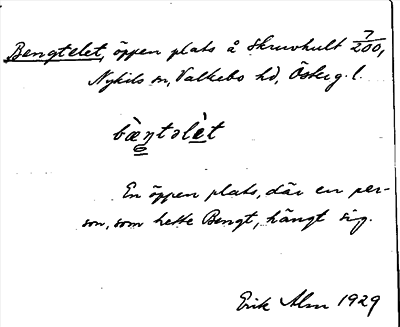 Bengtelet, öppen plats å Skruvhult 7/200,
Nykils sn, Valkebo hd, Österg. l.
En öppen plats, där en per-
son, som hette Bengt, hängt sig.
Erik Alm 1929